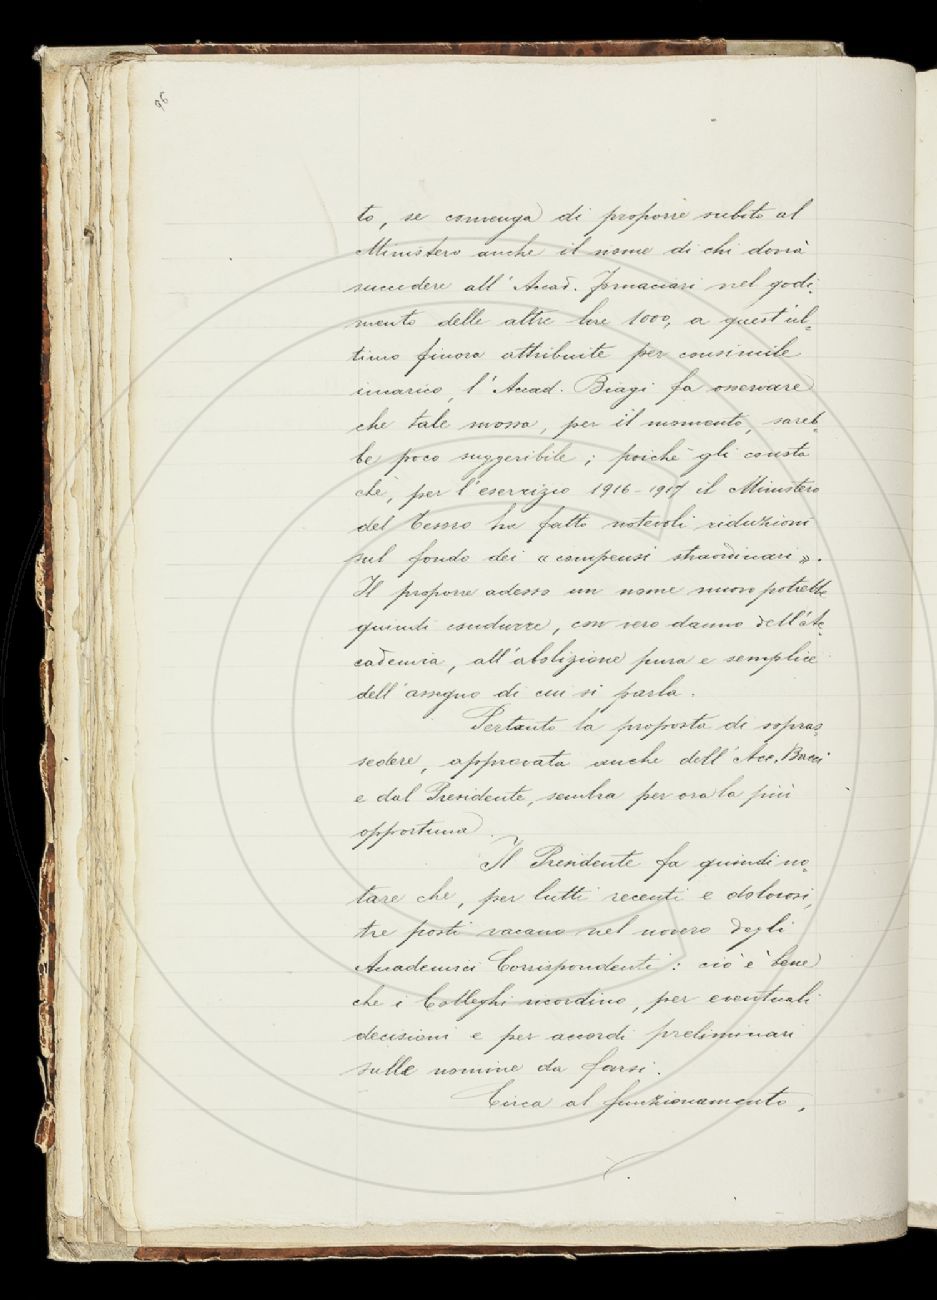 96
to, se convenga di proporre subito al
Ministero anche il nome di chi dovrà
succedere all'Accad. Fornaciari nel godi-
mento delle altre lire 1000, a quest'ul-
timo finora attribuite per consimile
incarico, l'Accad. Biagi fa osservare
che tale mossa, per il momento, sareb-
be poco suggeribile; poichè gli consta
che, per l'esercizio 1916-1917 il Ministero
del Tesoro ha fatto notevoli riduzioni
sul fondo dei "compensi straordinari".
Il proporre adesso un nome nuovo potrebbe
quindi condurre, con vero danno dell'Ac-
cademia, all'abolizione pura e semplice
dell'assegno di cui si parla.
Pertanto la proposta di sopras-
sedere, approvata anche dall'Acc. Bacci
e dal Presidente, sembra per ora la più
opportuna.
Il Presidente fa quindi no-
tare che, per lutti recenti e dolorosi,
tre posti vacano nel novero degli
Accademici Corrispondenti: ciò è bene
che i Colleghi ricordino, per eventuali
decisioni e per accordi preliminari
sulle nomine da farsi.
Circa al funzionamento,